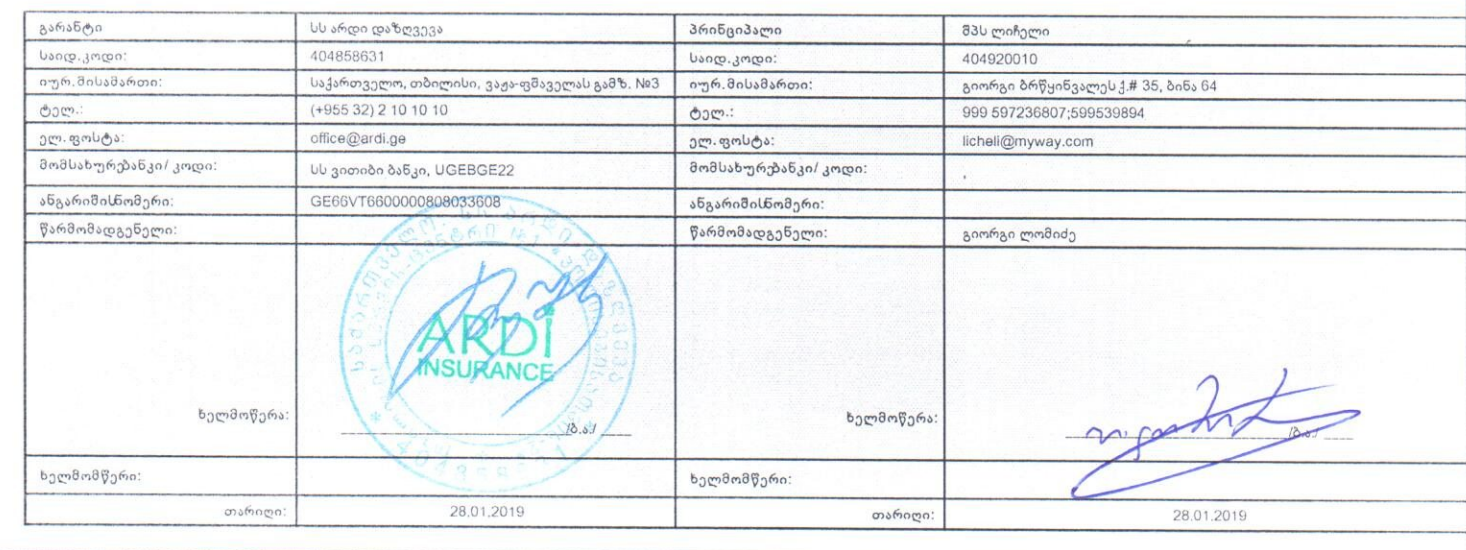 გარანტი სს არდი დაზღვევა პრინციპალი შპს ლიჩელი
საიდ.კოდი: 404858631 საიდ.კოდი: 404920010
იურ.მისამართი: საქართველო, თბილისი, ვაჟა-ფშაველას გამზ. №3 იურ.მისამართი: გიორგი ბრწყინვალეს ქ.# 35, ბინა 64
ტელ.: (+955 32) 2 10 10 10 ტელ.: 999 597236807;599539894
ელ.ფოსტა: office@ardi.ge ელ.ფოსტა: licheli@myway.com
მომსახურებანკი/ კოდი: სს ვითიბი ბანკი, UGEBGE22 მომსახურებანკი/ კოდი:
ანგარიშისნომერი: GE66VT6600000808033608 ანგარიშისნომერი:
წარმომადგენელი: წარმომადგენელი: გიორგი ლომიძე
ARDI
INSURANCE
ხელმოწერა: /ბ.ა./ ხელმოწერა: /ბ.ა./
ხელმომწერი: ხელმომწერი:
თარიღი: 28.01.2019 თარიღი: 28.01.2019